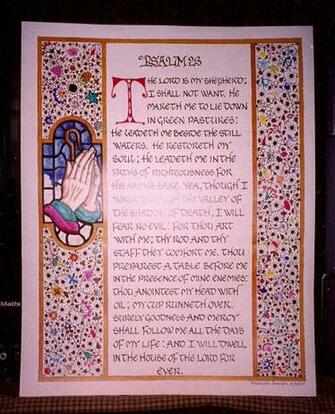 PSALM 23
THE LORD IS MY SHEPHERD;
I SHALL NOT WANT. HE
MAKETH ME TO LIE DOWN
IN GREEN PASTURES:
HE LEADETH ME BESIDE THE STILL
WATERS. HE RESTORETH MY
SOUL; HE LEADETH ME IN THE
PATHS OF RIGHTEOUSNESS FOR
HIS NAMES SAKE. YEA, THOUGH I
WALK THROUGH THE VALLEY OF
THE SHADOW OF DEATH, I WILL
FEAR NO EVIL: FOR THOU ART
WITH ME; THY ROD AND THY
STAFF THEY COMFORT ME. THOU
PREPAREST A TABLE BEFORE ME
IN THE PRESENCE OF MINE ENEMIES:
THOU ANOINTEST MY HEAD WITH
OIL; MY CUP RUNNETH OVER.
SURELY GOODNESS AND MERCY
SHALL FOLLOW ME ALL THE DAYS
OF MY LIFE: AND I WILL DWELL
IN THE HOUSE OF THE LORD FOR
EVER.